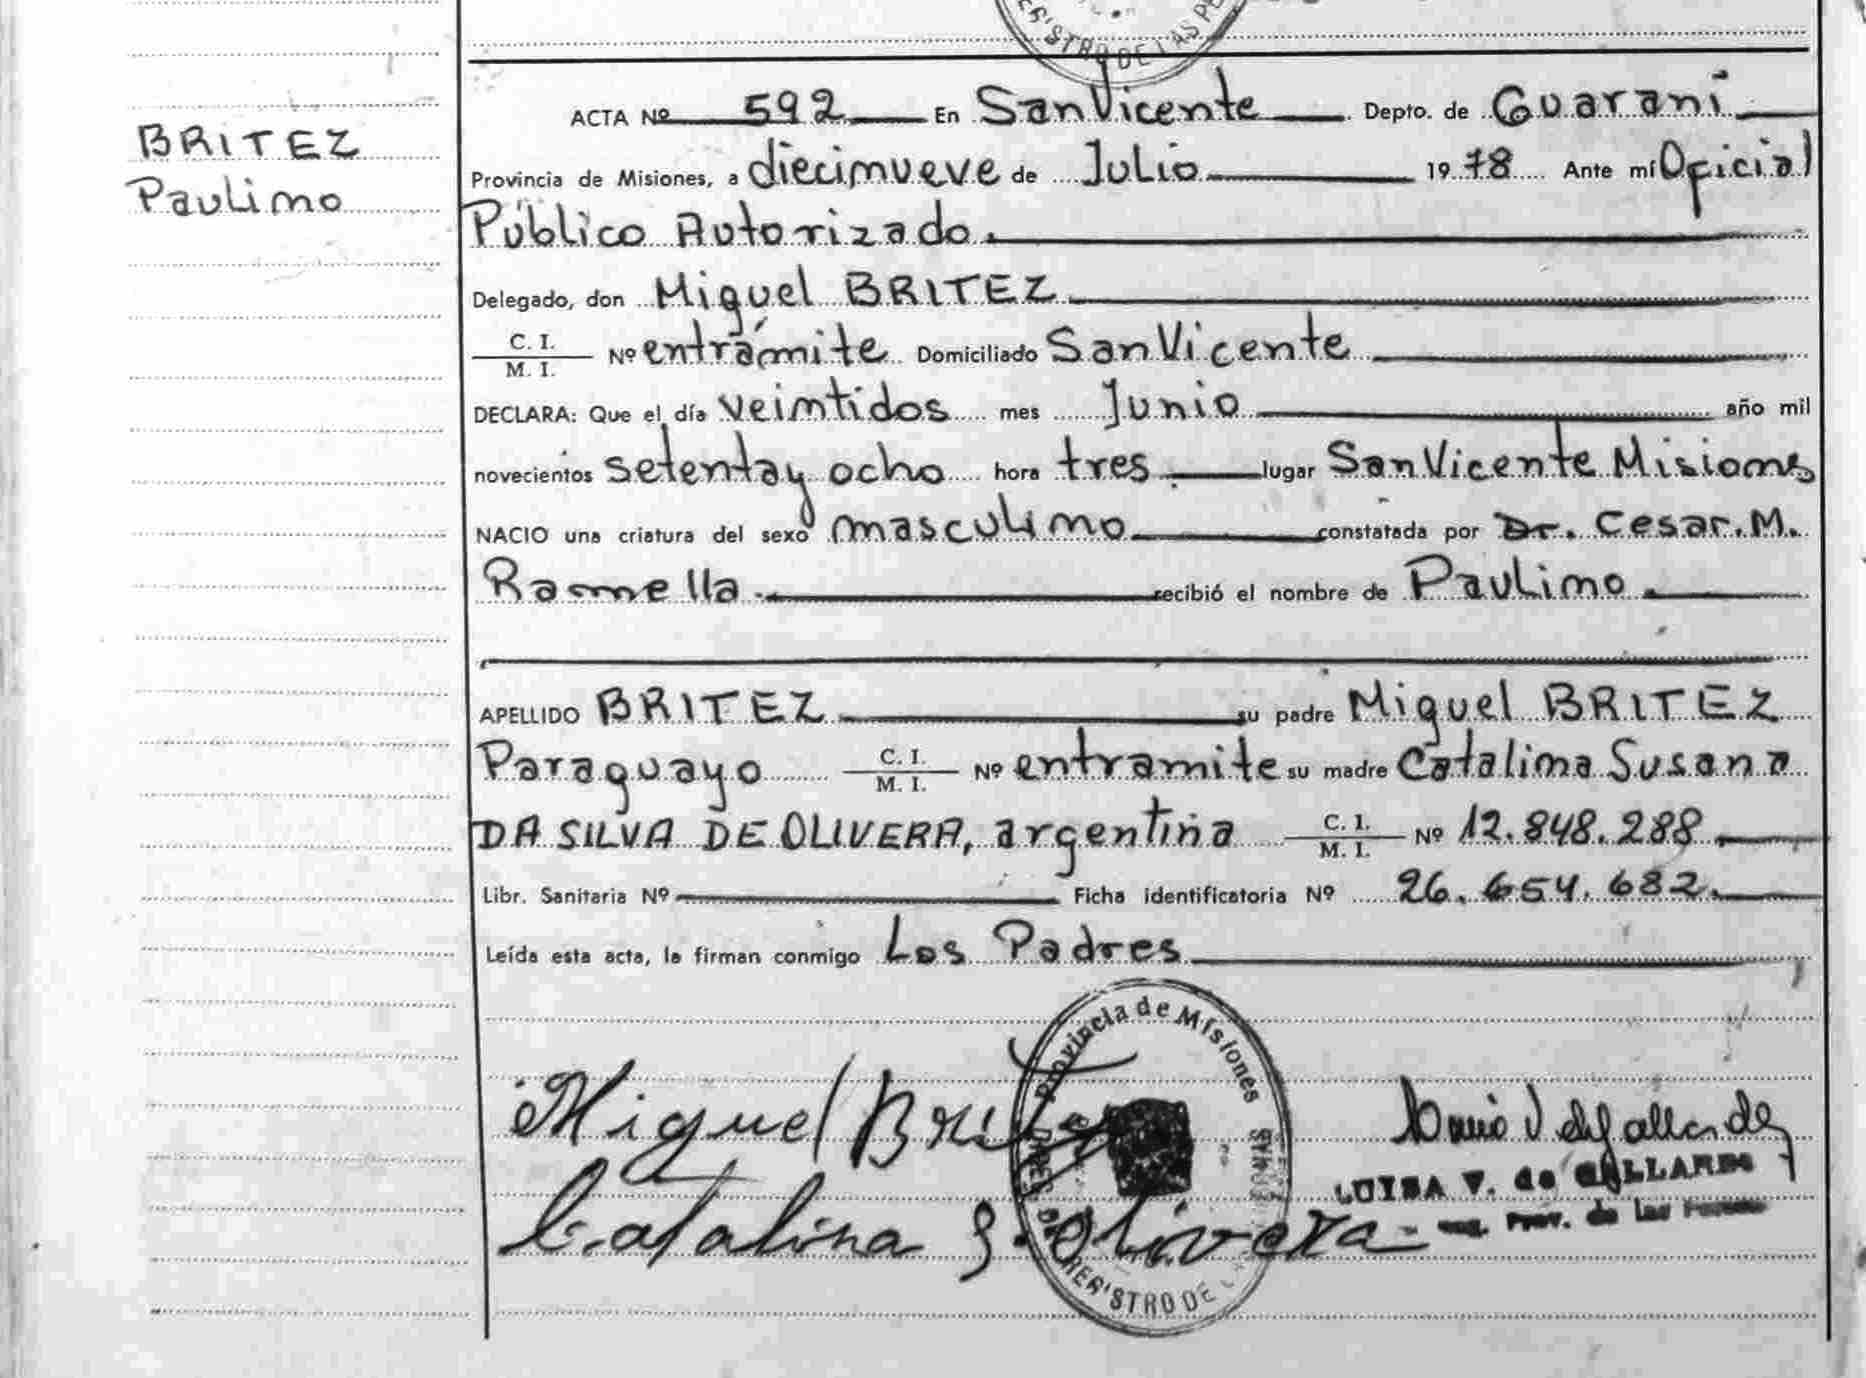 REGISTRO DE LAS PE
BRITEZ
Paulino
ACTA Nº 592 En San Vicente Depto. de Guaraní
Provincia de Misiones, a diecinueve de Julio 1978 Ante mí Oficial
Público Autorizado.
Delegado, don Miguel BRITEZ
C. I.
M. I. Nº en trámite Domiciliado San Vicente
DECLARA: Que el día veintidos mes Junio año mil
novecientos setenta y ocho hora tres lugar San Vicente Misiones
NACIO una criatura del sexo masculino constatada por Dr. Cesar. M.
Ramella recibió el nombre de Paulino
APELLIDO BRITEZ su padre Miguel BRITEZ
Paraguayo C. I.
M. I. Nº en tramite su madre Catalina Susana
DA SILVA DE OLIVERA, argentina C. I.
M. I. Nº 12.848.288
Libr. Sanitaria Nº Ficha identificatoria Nº 26.654.682.
Leída esta acta, la firman conmigo Los Padres
Provincia de Misiones
Miguel Britez
Catalina S. Olivera
LUISA V. de GALLARDO
Prov. de las
REGISTRO DE